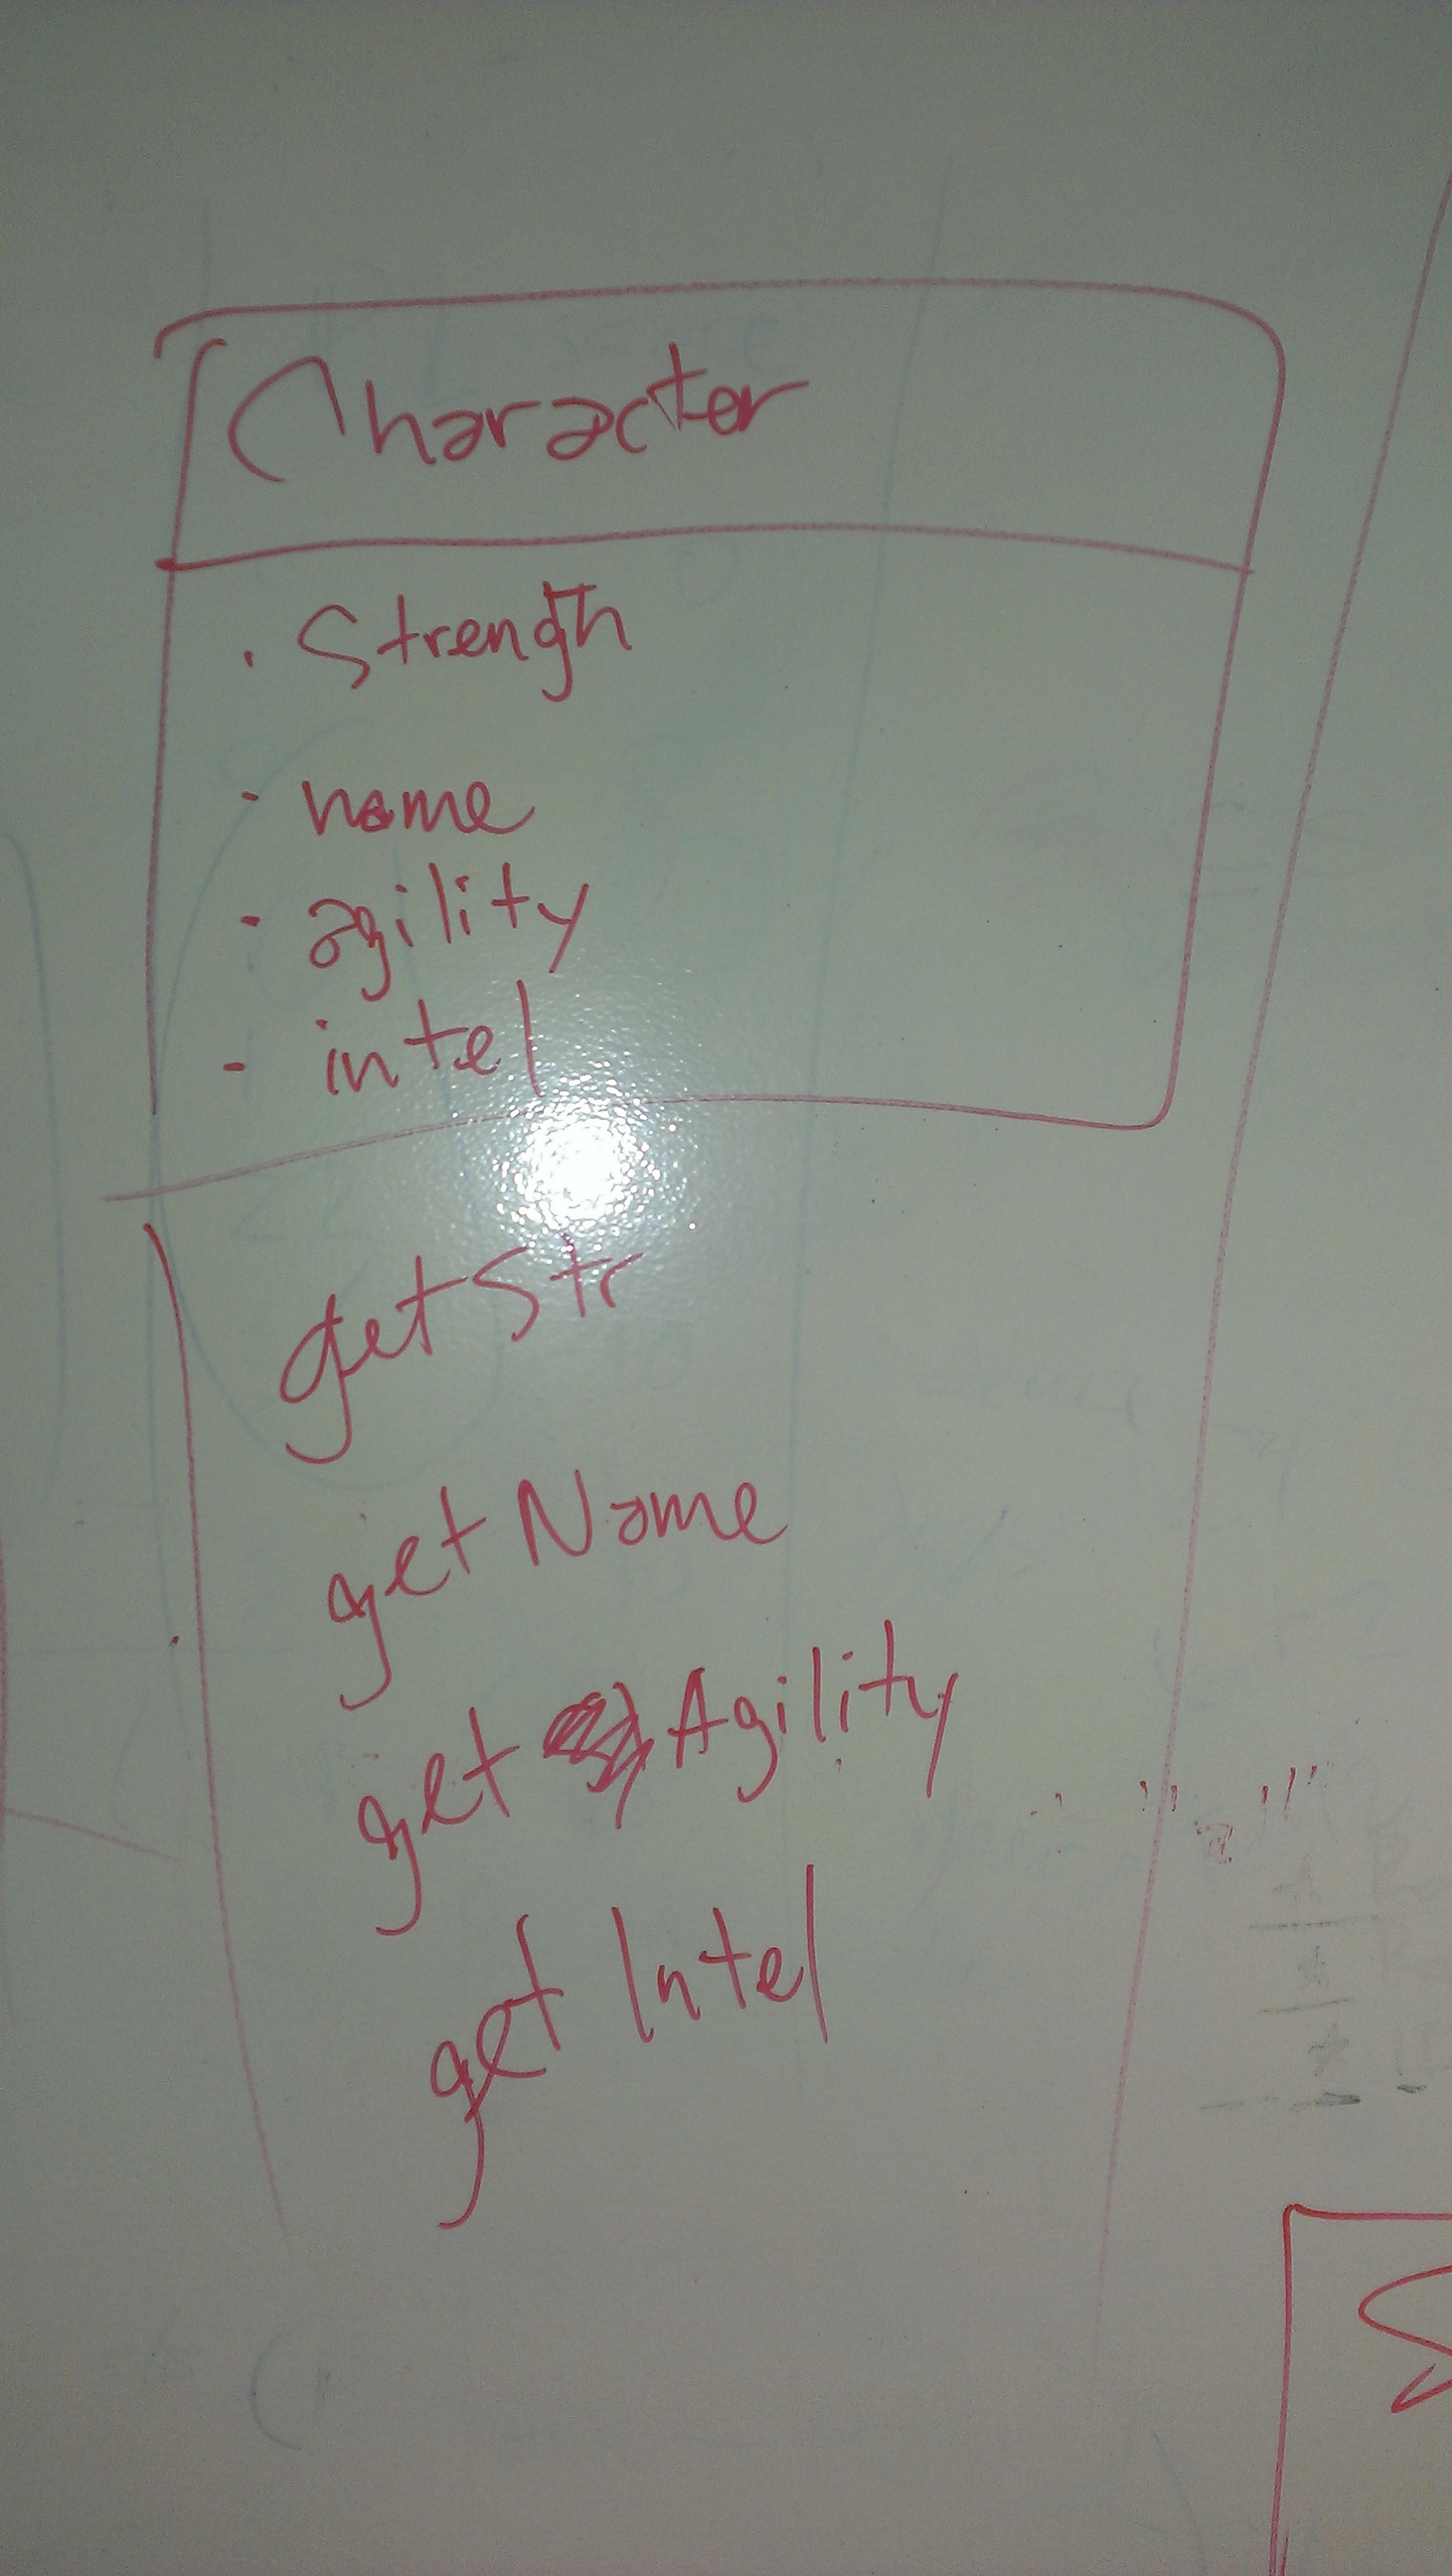 Character
· Strength
- name
- agility
- intel
getStr
getName
get Agility
get Intel